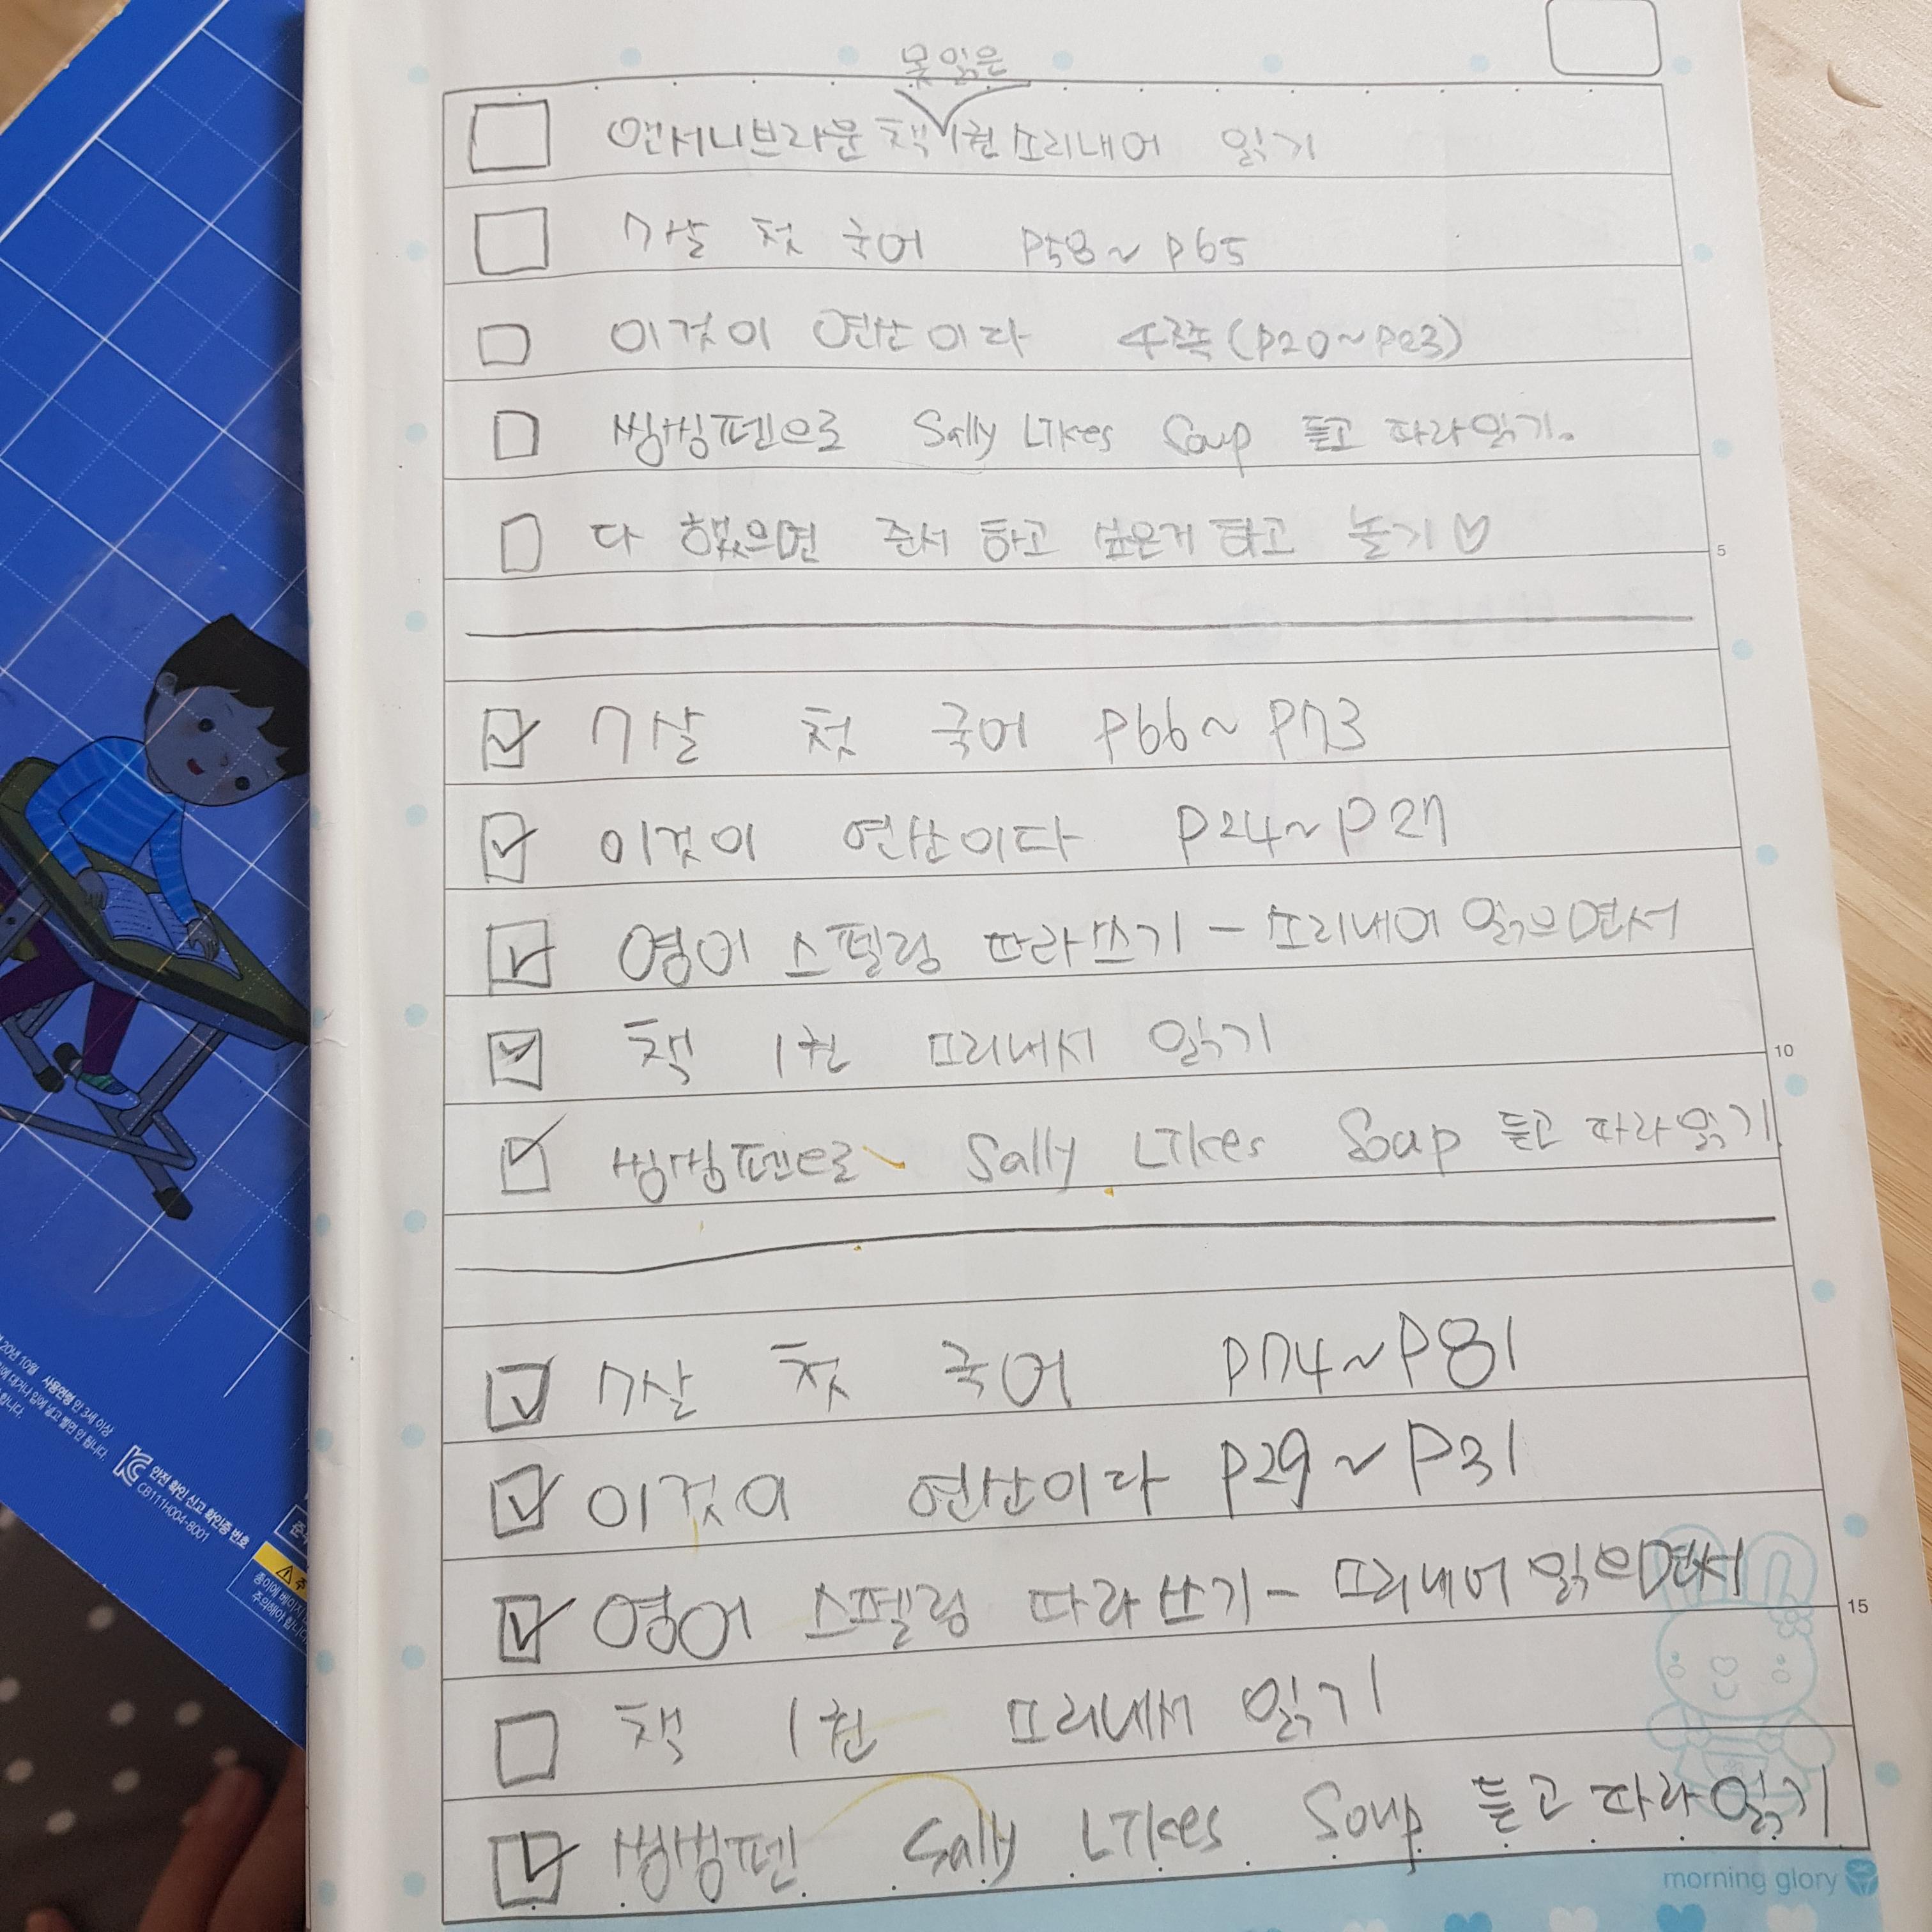 못 읽은
앤서니브라운 책 1권 소리내어 읽기
7살 첫 국어 P58~P65
이것이 연산이다 4쪽(P20~P23)
씽씽펜으로 Sally Likes Soup 듣고 따라읽기.
다 했으면 준서 하고 싶은거 하고 놀기♡
5
7살 첫 국어 P66~P73
이것이 연산이다 P24~P27
영어 스펠링 따라쓰기 - 소리내어 읽으면서
책 1권 소리내서 읽기
10
씽씽펜으로 Sally Likes Soup 듣고 따라읽기
7살 첫 국어 P74~P81
이것이 연산이다 P29~P31
영어 스펠링 따라쓰기 - 소리내어 읽으면서
15
책 1권 소리내서 읽기
씽씽펜 Sally Likes Soup 듣고 따라읽기
morning glory
20년 10월 사용연령 만 3세 이상
대거나 입에 넣고 빨면 안 됩니다.
합니다.
KC 안전 확인 신고 확인증 번호
CB111H004-8001
주
종이에 베이지
주의해야 합니다